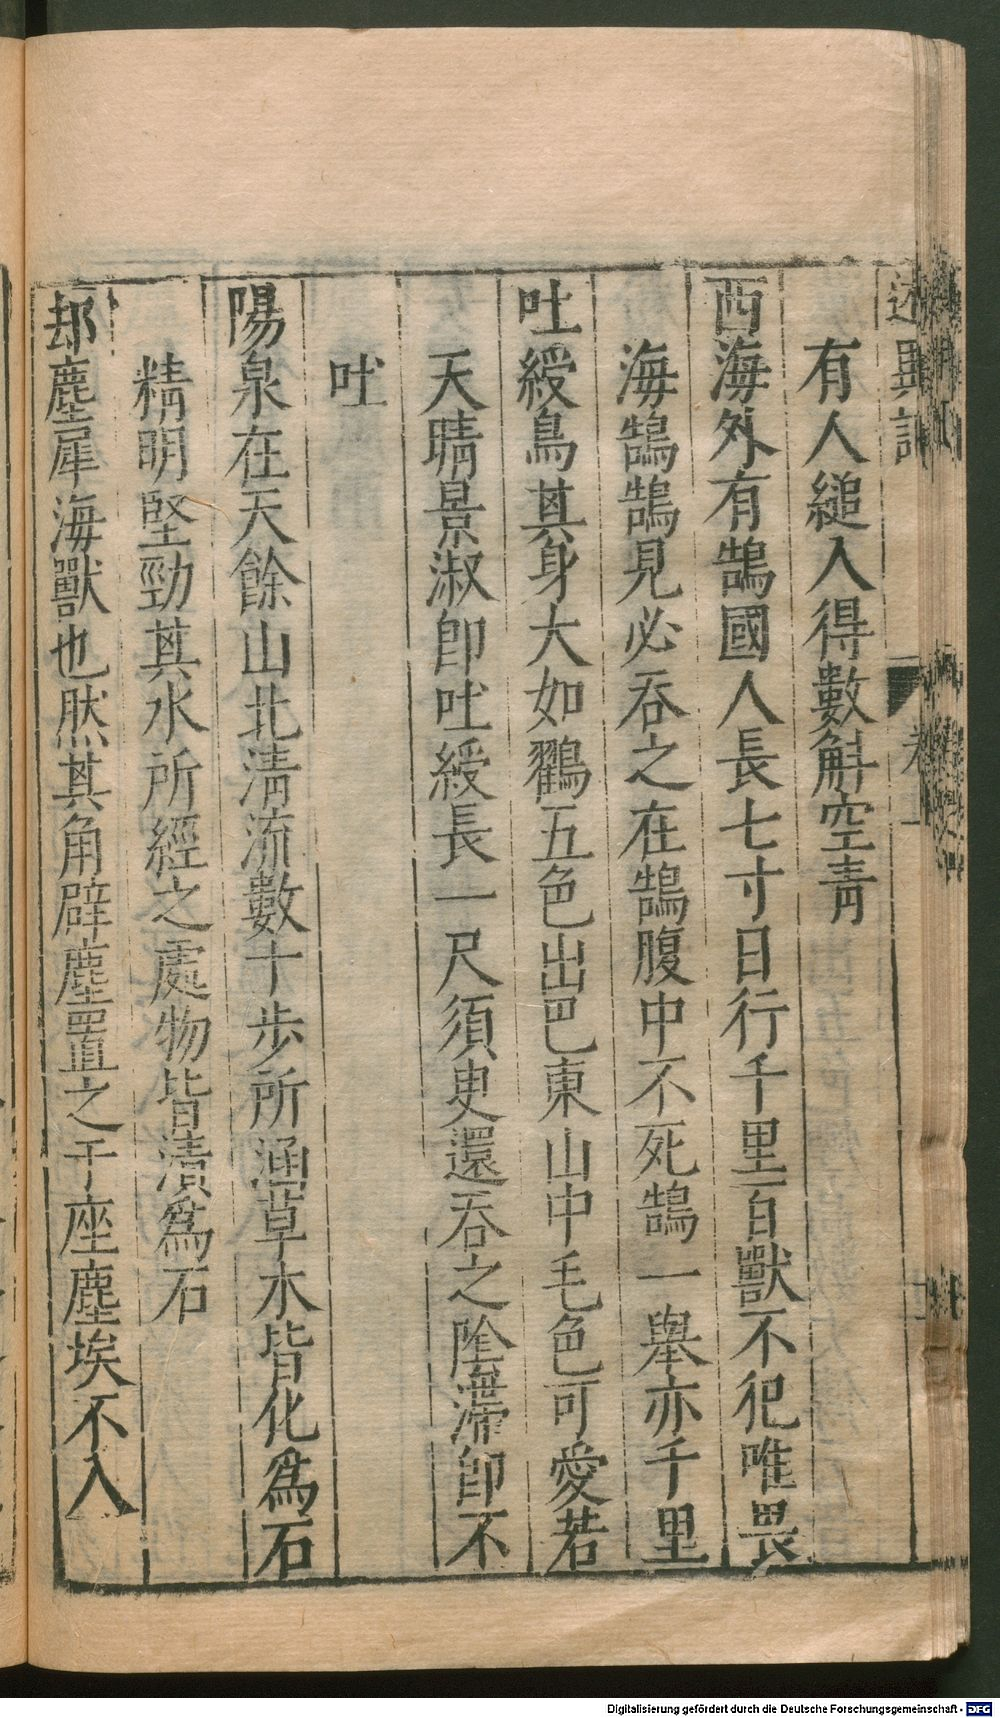 述異記
卷上
有人縋入得數斛空青
西海外有鵠國人長七寸日行千里百獸不犯唯畏
海鵠鵠見必吞之在鵠腹中不死鵠一舉亦千里
吐綬鳥其身大如鸛五色出巴東山中毛色可愛若
天晴景淑卽吐綬長一尺須臾還吞之陰滯卽不
吐
陽泉在天餘山北淸流數十步所涵草木皆化爲石
精明堅勁其水所經之處物皆漬爲石
却塵犀海獸也然其角辟塵置之于座塵埃不入
Digitalisierung gefördert durch die Deutsche Forschungsgemeinschaft - DFG